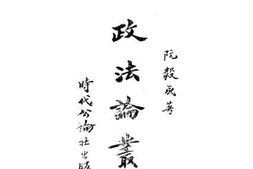 阮毅成著
政法論叢
時代公論社出版